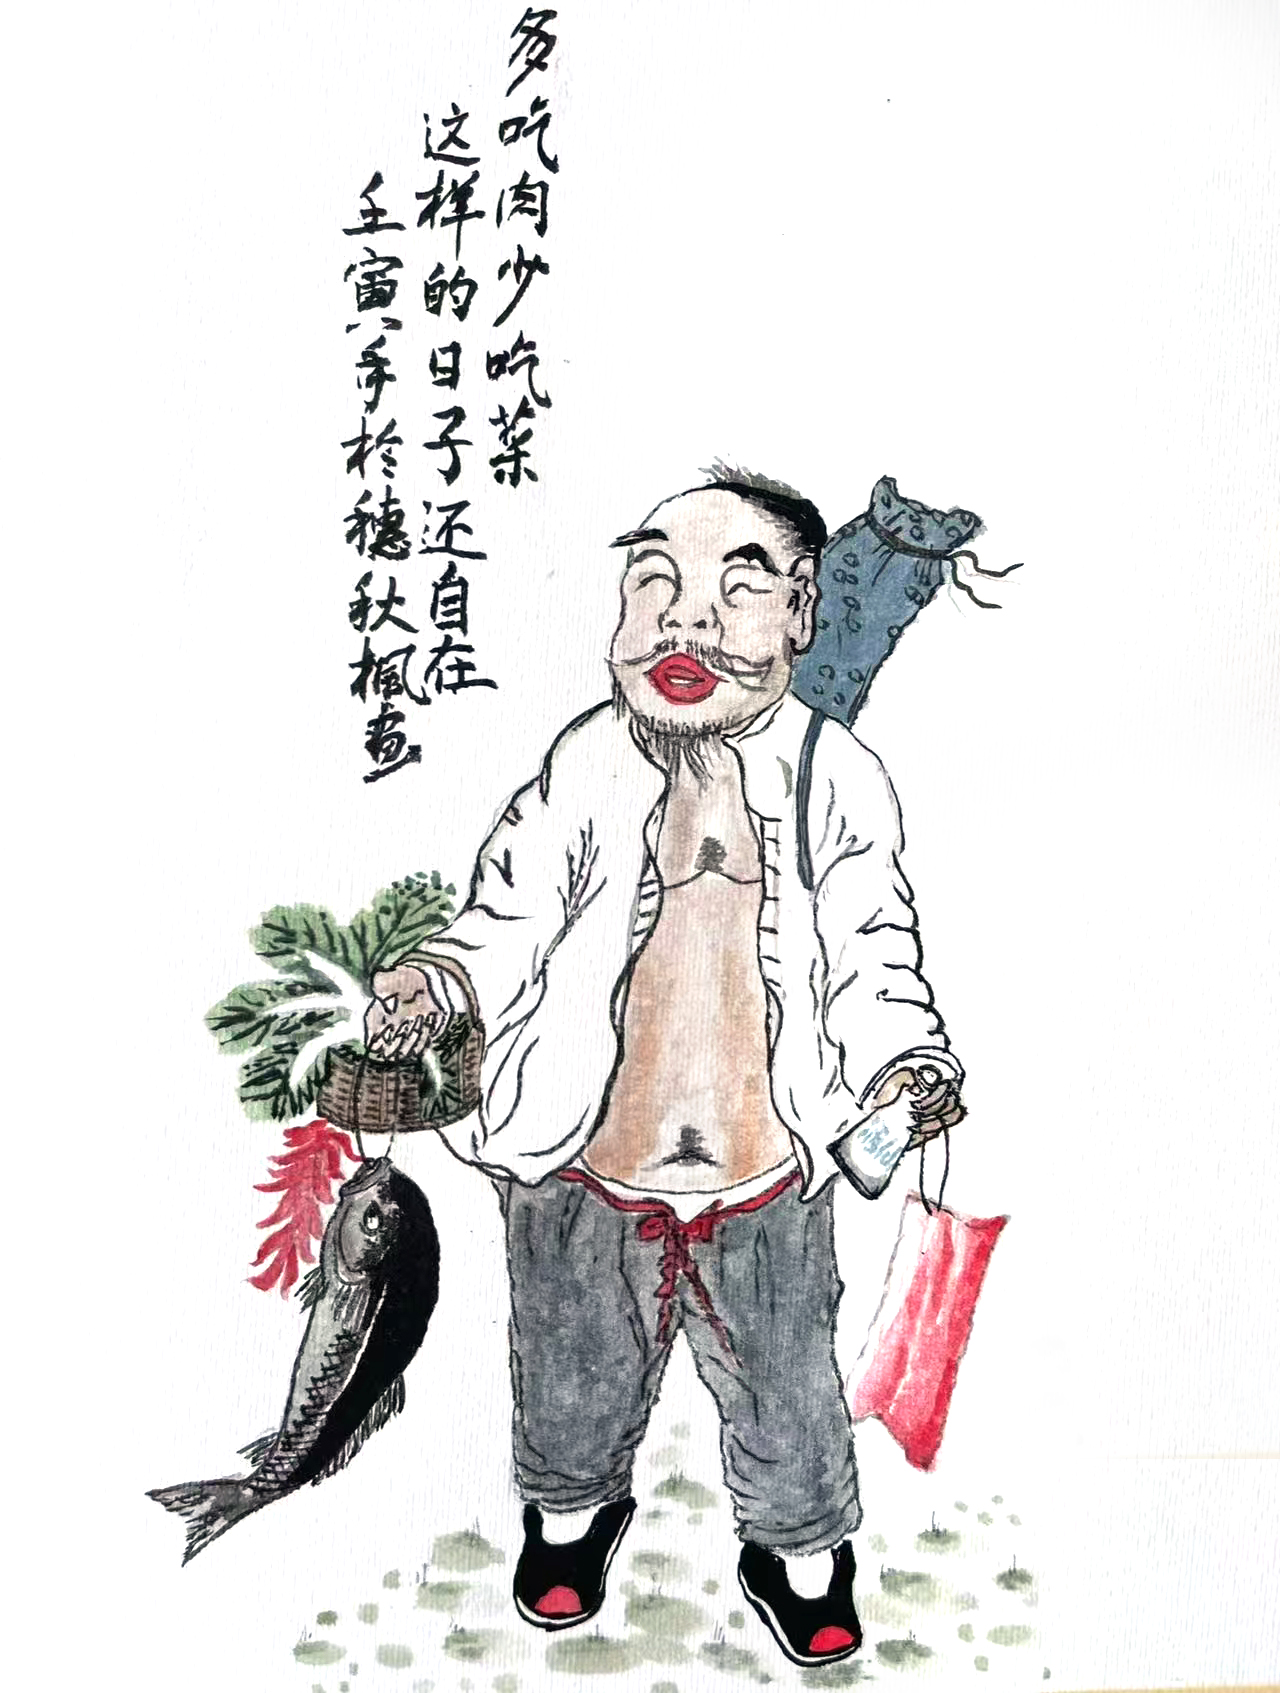 多吃肉少吃菜
这样的日子还自在
壬寅年於穗秋楓畫